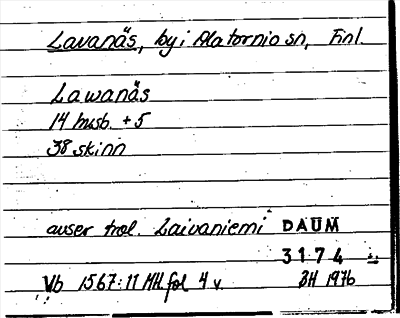 Lavanäs, by i Alatornio sn, Finl.
Lawanäs
14 husb. + 5
38 skinn
avser trol. Laivaniemi DAUM
3174
Vb 1567:11 MH fol 4 v. BH 1976